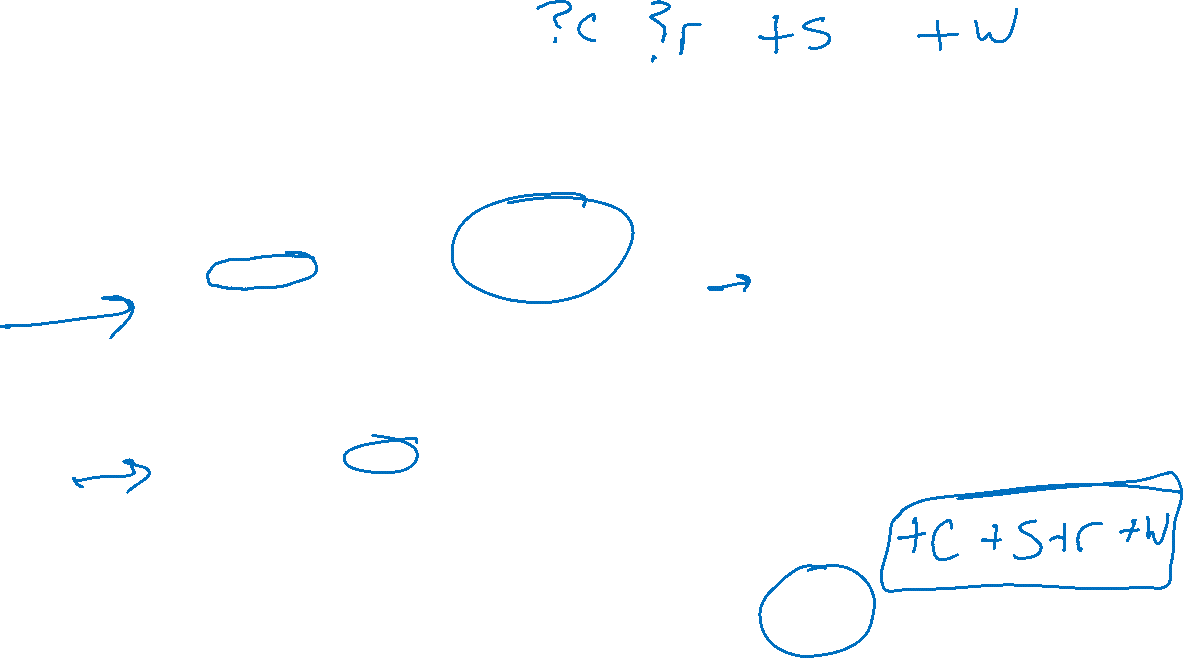 ?c ?r +s +w
+c +s+r +w